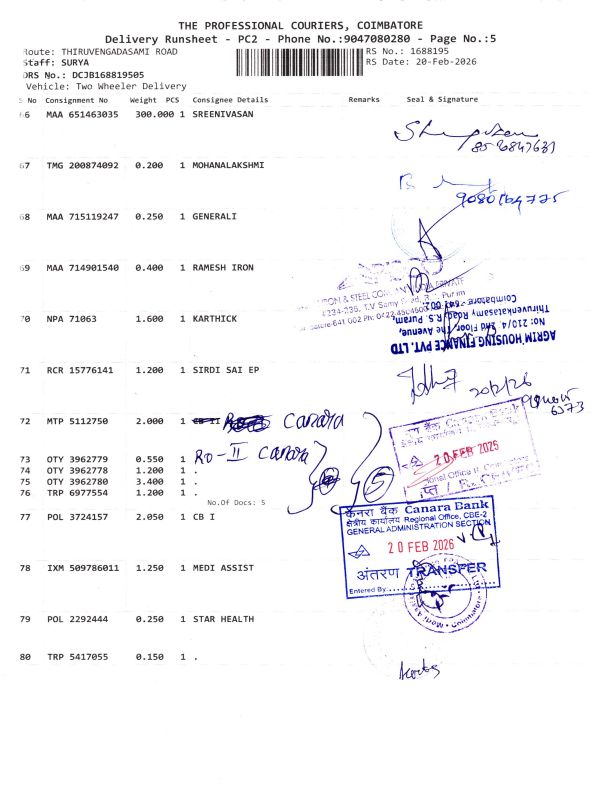 THE PROFESSIONAL COURIERS, COIMBATORE
Delivery Runsheet - PC2 - Phone No.:9047080280 - Page No.:5
Route: THIRUVENGADASAMI ROAD
RS No.: 1688195
Staff: SURYA
RS Date: 20-Feb-2026
DRS No.: DCJB168819505
Vehicle: Two Wheeler Delivery
S No Consignment No Weight PCS Consignee Details Remarks Seal & Signature
66 MAA 651463035 300.000 1 SREENIVASAN
67 TMG 200874092 0.200 1 MOHANALAKSHMI
68 MAA 715119247 0.250 1 GENERALI
69 MAA 714901540 0.400 1 RAMESH IRON
70 NPA 71063 1.600 1 KARTHICK
AGRIM HOUSING FINANCE PVT. LTD
No: 210/4, 2nd Floor, The Avenue,
Thiruvenkatasamy Road, R.S. Puram,
Coimbatore - 641 002.
71 RCR 15776141 1.200 1 SIRDI SAI EP
20/2/26
72 MTP 5112750 2.000 1 CB II Canara
73 OTY 3962779 0.550 1 RO-II Canara
74 OTY 3962778 1.200 1 .
75 OTY 3962780 3.400 1 .
76 TRP 6977554 1.200 1 .
5
No.Of Docs: 5
20 FEB 2025
77 POL 3724157 2.050 1 CB I
केनरा बैंक Canara Bank
क्षेत्रीय कार्यालय Regional Office, CBE-2
GENERAL ADMINISTRATION SECTION
20 FEB 2026
अंतरण TRANSFER
Entered By:
78 IXM 509786011 1.250 1 MEDI ASSIST
79 POL 2292444 0.250 1 STAR HEALTH
80 TRP 5417055 0.150 1 .